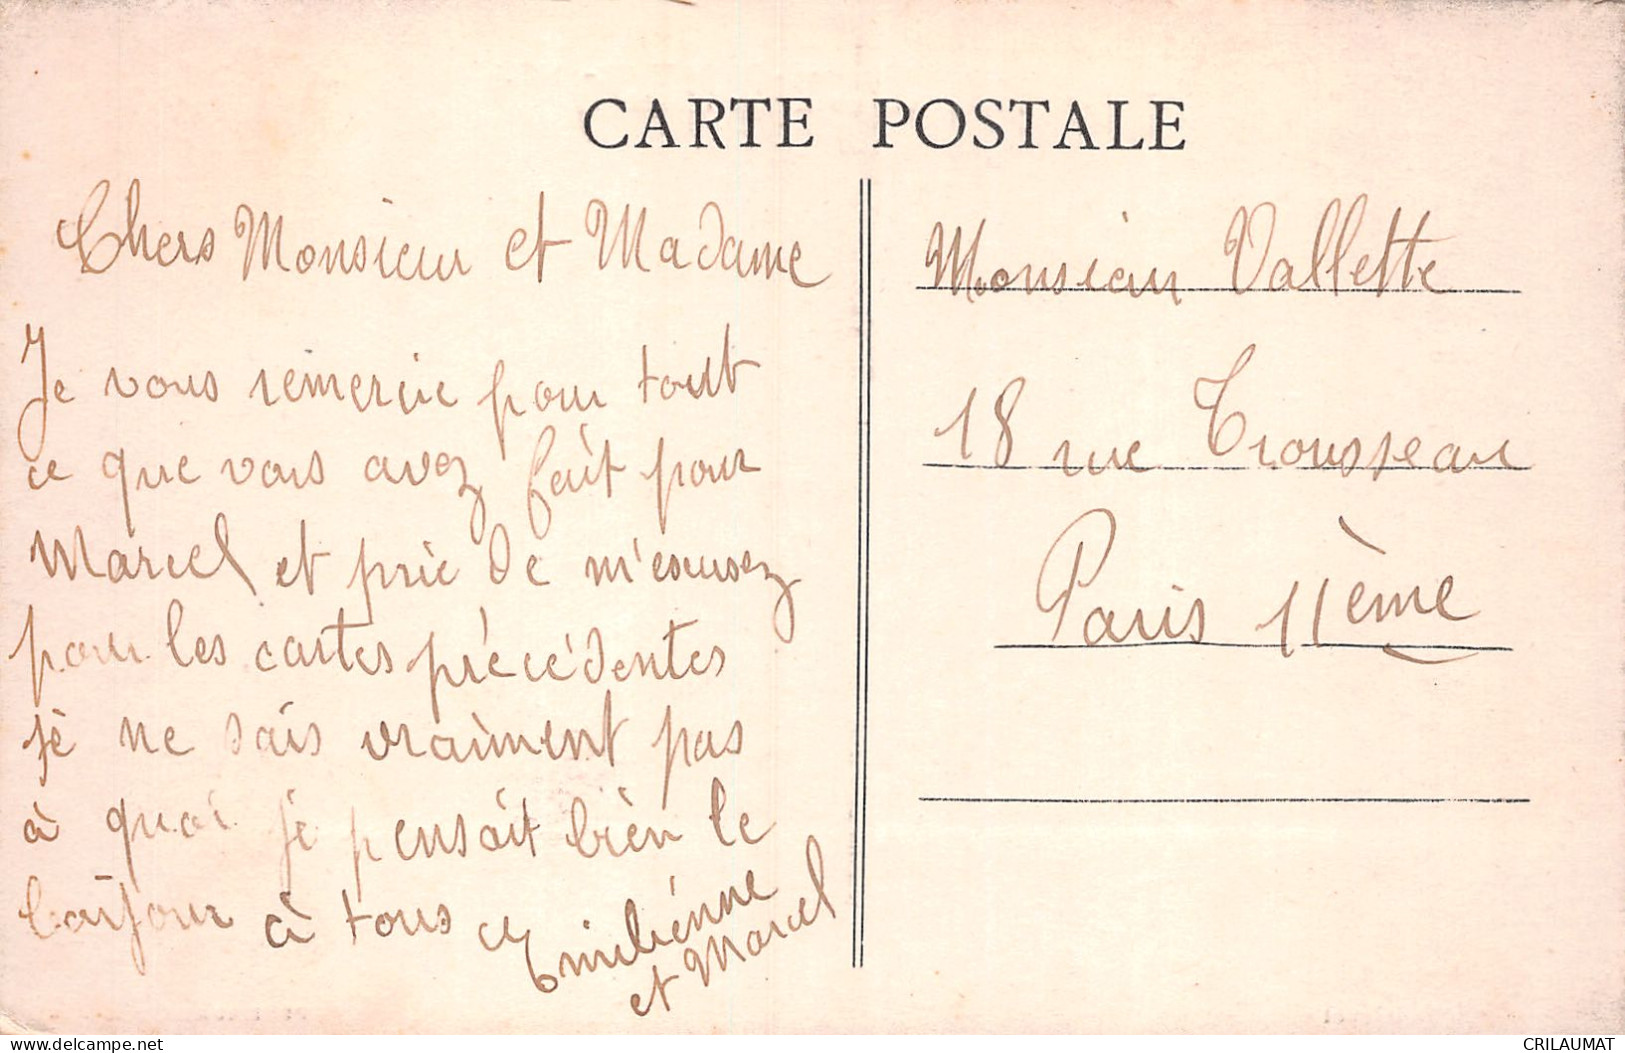 CARTE POSTALE
Chers Monsieur et Madame
Je vous remercie pour tout
ce que vous avez fait pour
Marcel et prie de m'excusez
pour les cartes précédentes
je ne sais vraiment pas
à quoi je pensait bien le
bonjour à tous
Emiliénne
et Marcel
Monsieur Vallette
18 rue Trousseau
Paris 11ème
www.delcampe.net
CRILAUMAT